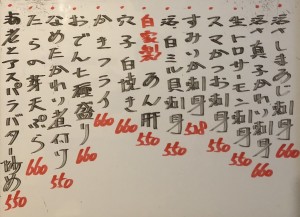 活〆しまあじ刺身 660
活〆真子かれい刺身 660
生トロサーモン刺身 550
スマかつお刺身 550
すみいか刺身 528
活白ミル貝刺身 550
自家製 あん肝 660
穴子白焼き 660
かきフライ 660
おでん七種盛り 660
なめたかれい煮付け 550
たらの芽天ぷら 660
海老とアスパラバター炒め 550